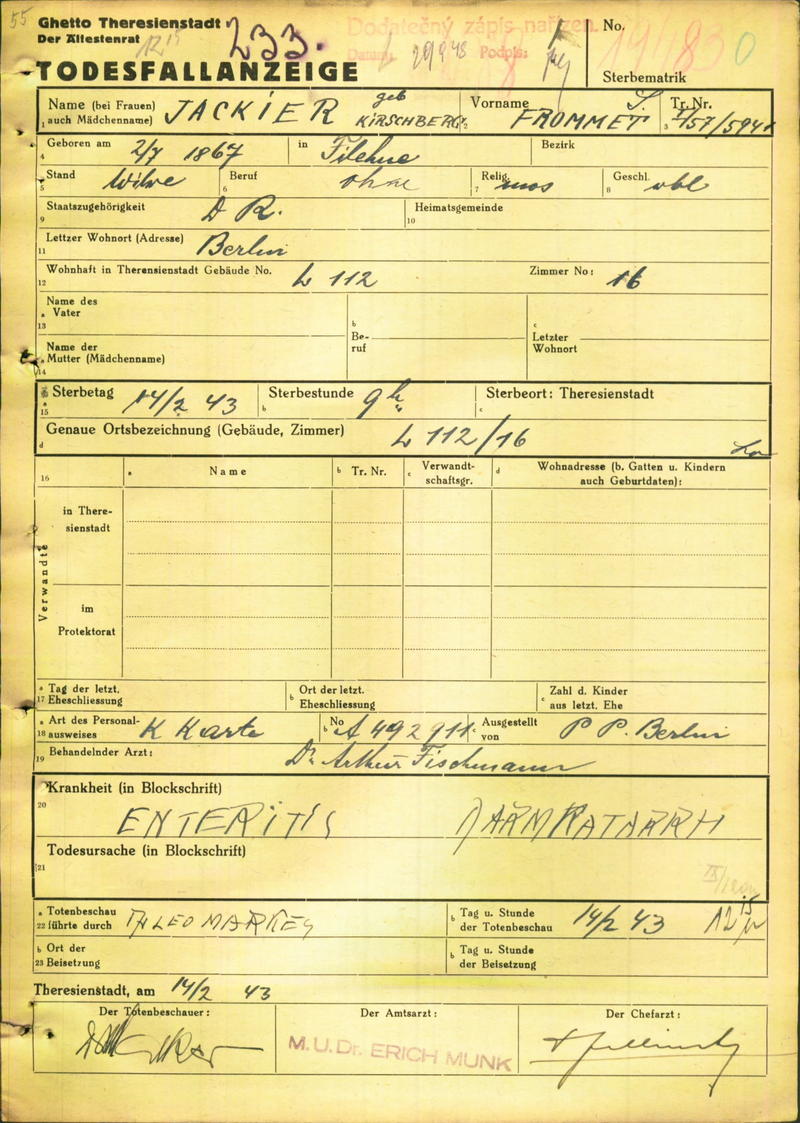 55
Ghetto Theresienstadt
Der Ältestenrat
233.
Dodatečný zápis nařízen.
Datum: Podpis:
No.
Sterbematrik
TODESFALLANZEIGE
Name (bei Frauen) auch Mädchenname) JACKIER geb KIRSCHBERG
Vorname FROMMET S.
Tr. Nr.
1 2 3
4 Geboren am 2/7 1867 in Filehne Bezirk
5 Stand Witwe
6 Beruf ohne
7 Relig. mos
8 Geschl. wbl
9 Staatszugehörigkeit D R.
10 Heimatsgemeinde
11 Lettzer Wohnort (Adresse) Berlin
12 Wohnhaft in Theresienstadt Gebäude No. L 112 Zimmer No: 16
13 a Name des Vater
b Beruf
c Letzter Wohnort
14 a Name der Mutter (Mädchenname)
15 a Sterbetag 14/2 43
b Sterbestunde 9 h
c Sterbeort: Theresienstadt
d Genaue Ortsbezeichnung (Gebäude, Zimmer) L 112/16
16 a Name b Tr. Nr. c Verwandtschaftsgr. d Wohnadresse (b. Gatten u. Kindern auch Geburtdaten):
Verwandte
in Theresienstadt
im Protektorat
17 a Tag der letzt. Eheschliessung
b Ort der letzt. Eheschliessung
c Zahl d. Kinder aus letzt. Ehe
18 a Art des Personalausweises K Karte
b No A 492 911. Ausgestellt von P P. Berlin
19 Behandelnder Arzt: Dr. Arthur Fischmann
20 Krankheit (in Blockschrift)
ENTERITIS DARMKATARRH
21 Todesursache (in Blockschrift)
22 a Totenbeschau führte durch
b Tag u. Stunde der Totenbeschau 14/2 43 12 15
23 b Ort der Beisetzung
b Tag u. Stunde der Beisetzung
Theresienstadt, am 14/2 43
Der Totenbeschauer: Der Amtsarzt: Der Chefarzt:
M.U.Dr. ERICH MUNK